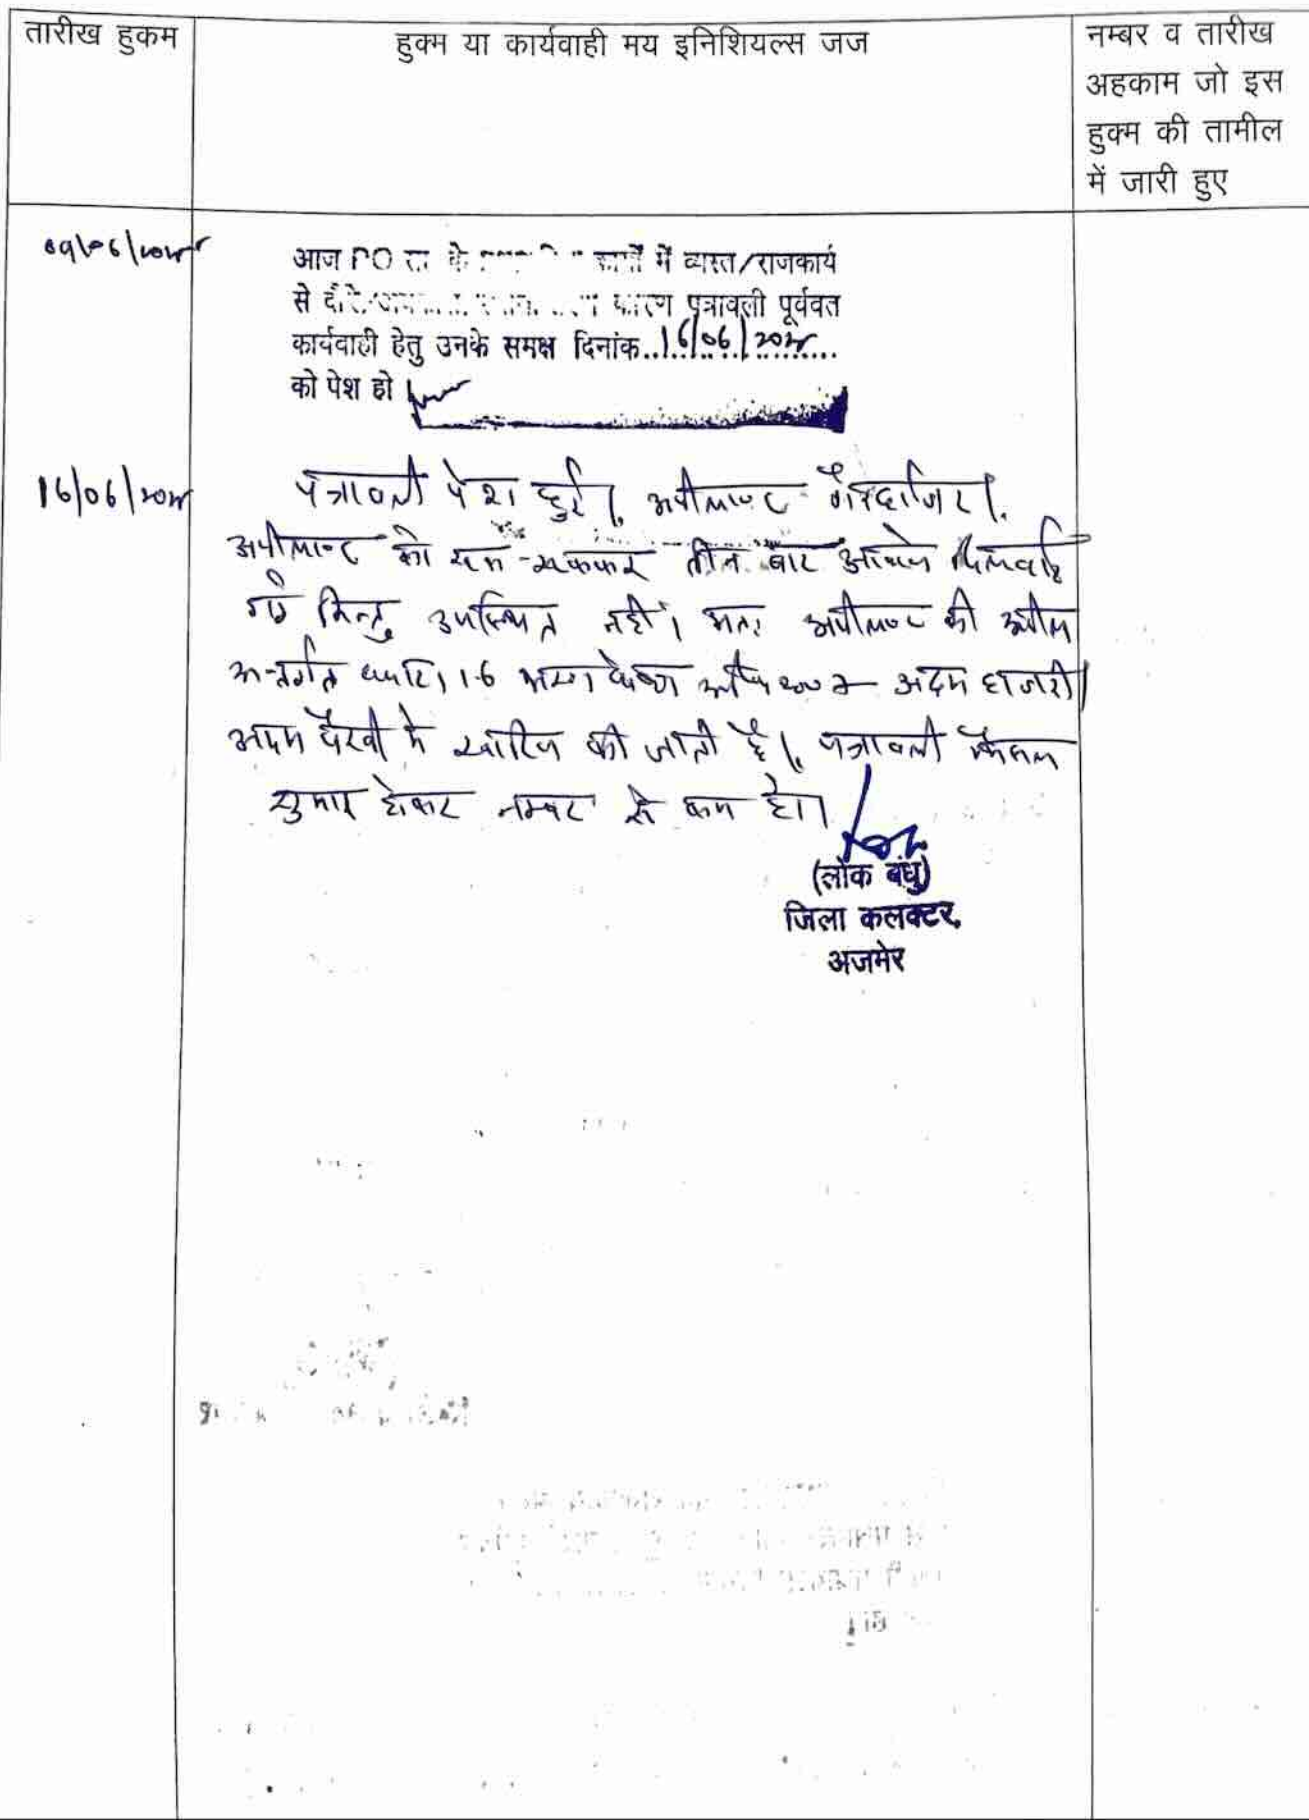 तारीख हुकम
हुक्म या कार्यवाही मय इनिशियल्स जज
नम्बर व तारीख
अहकाम जो इस
हुक्म की तामील
में जारी हुए
आज PO के कार्यों में व्यस्त/राजकार्य
से कारण पत्रावली पूर्ववत
कार्यवाही हेतु उनके समक्ष दिनांक..16/06/2025..
को पेश हो
16/06/2025
पत्रावली पेश हुई। अपीलाण्ट गैरहाजिर।
अपीलाण्ट को तीन बार दिलवाई
गई किन्तु उपस्थित नहीं। अतः अपीलाण्ट की अपील
अन्तर्गत धारा 16 अदम हाजरी
अदम पैरवी में खारिज की जाती है। पत्रावली फैसल
शुमार होकर नम्बर से कम हो।
(लोक बंधु)
जिला कलक्टर,
अजमेर